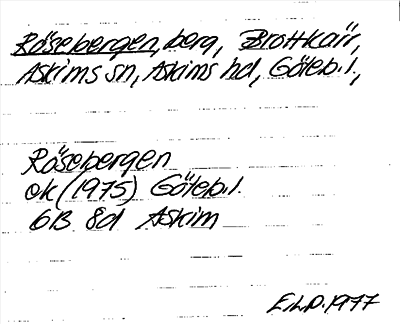 Rösebergen, berg, Brottkärr,
Askims sn, Askims hd, Göteb. l.,
Rösebergen
ek (1975) Göteb. l.
6B 8d Askim
E.L.D. 1977